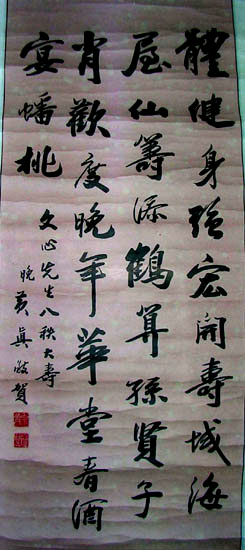 體健身強宏開壽域海
屋仙籌添鶴算孫賢子
肖歡度晚年華堂春酒
宴蟠桃
文心先生八秩大壽
晚黃真敬賀